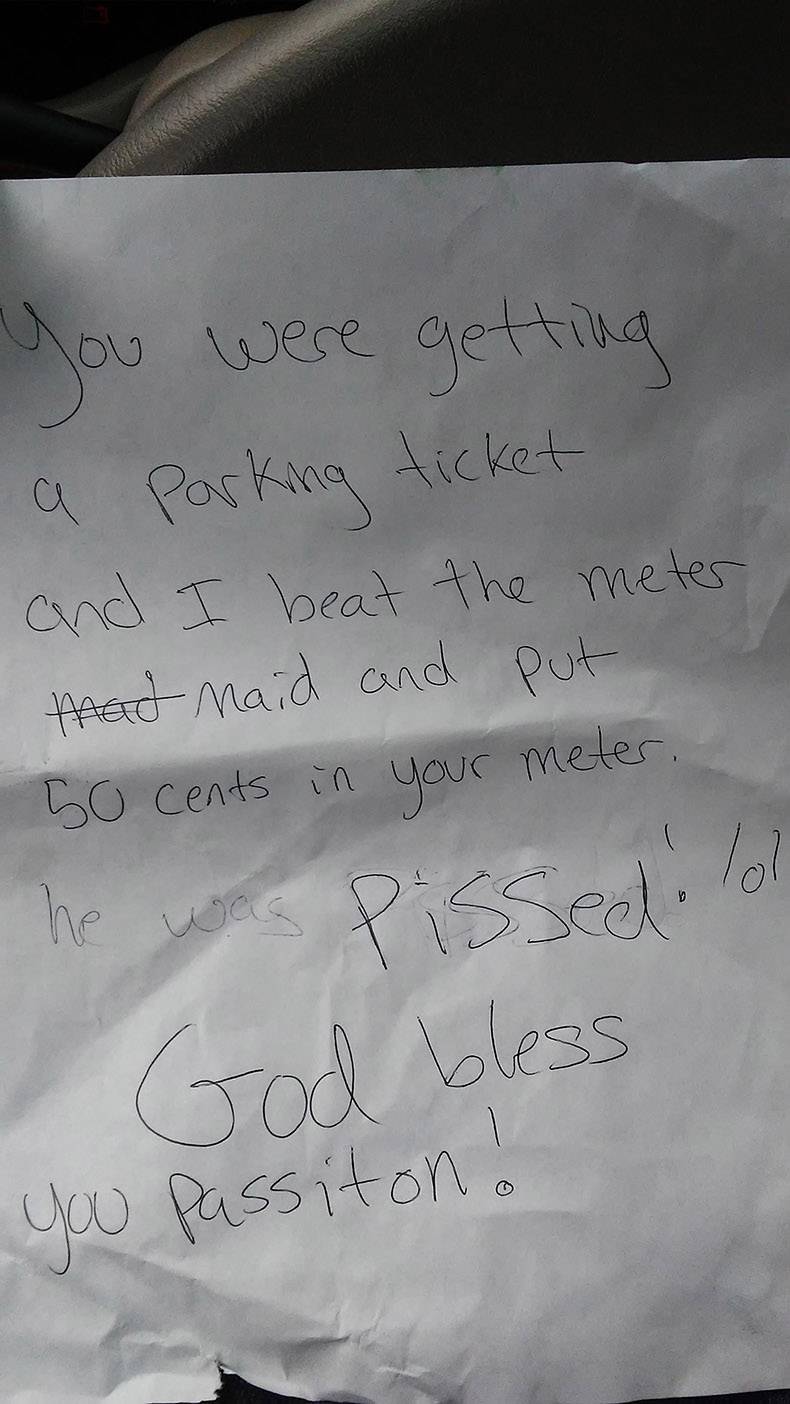 You were getting
a parking ticket
and I beat the meter
mad maid and put
50 cents in your meter.
he was Pissed! lol
God bless
you passiton!